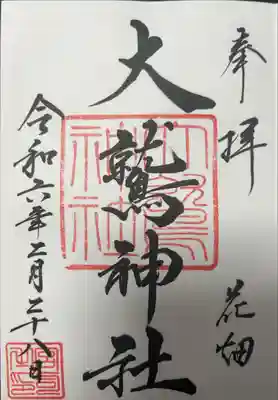 奉拝
花畑
大鷲神社
令和六年二月二十八日